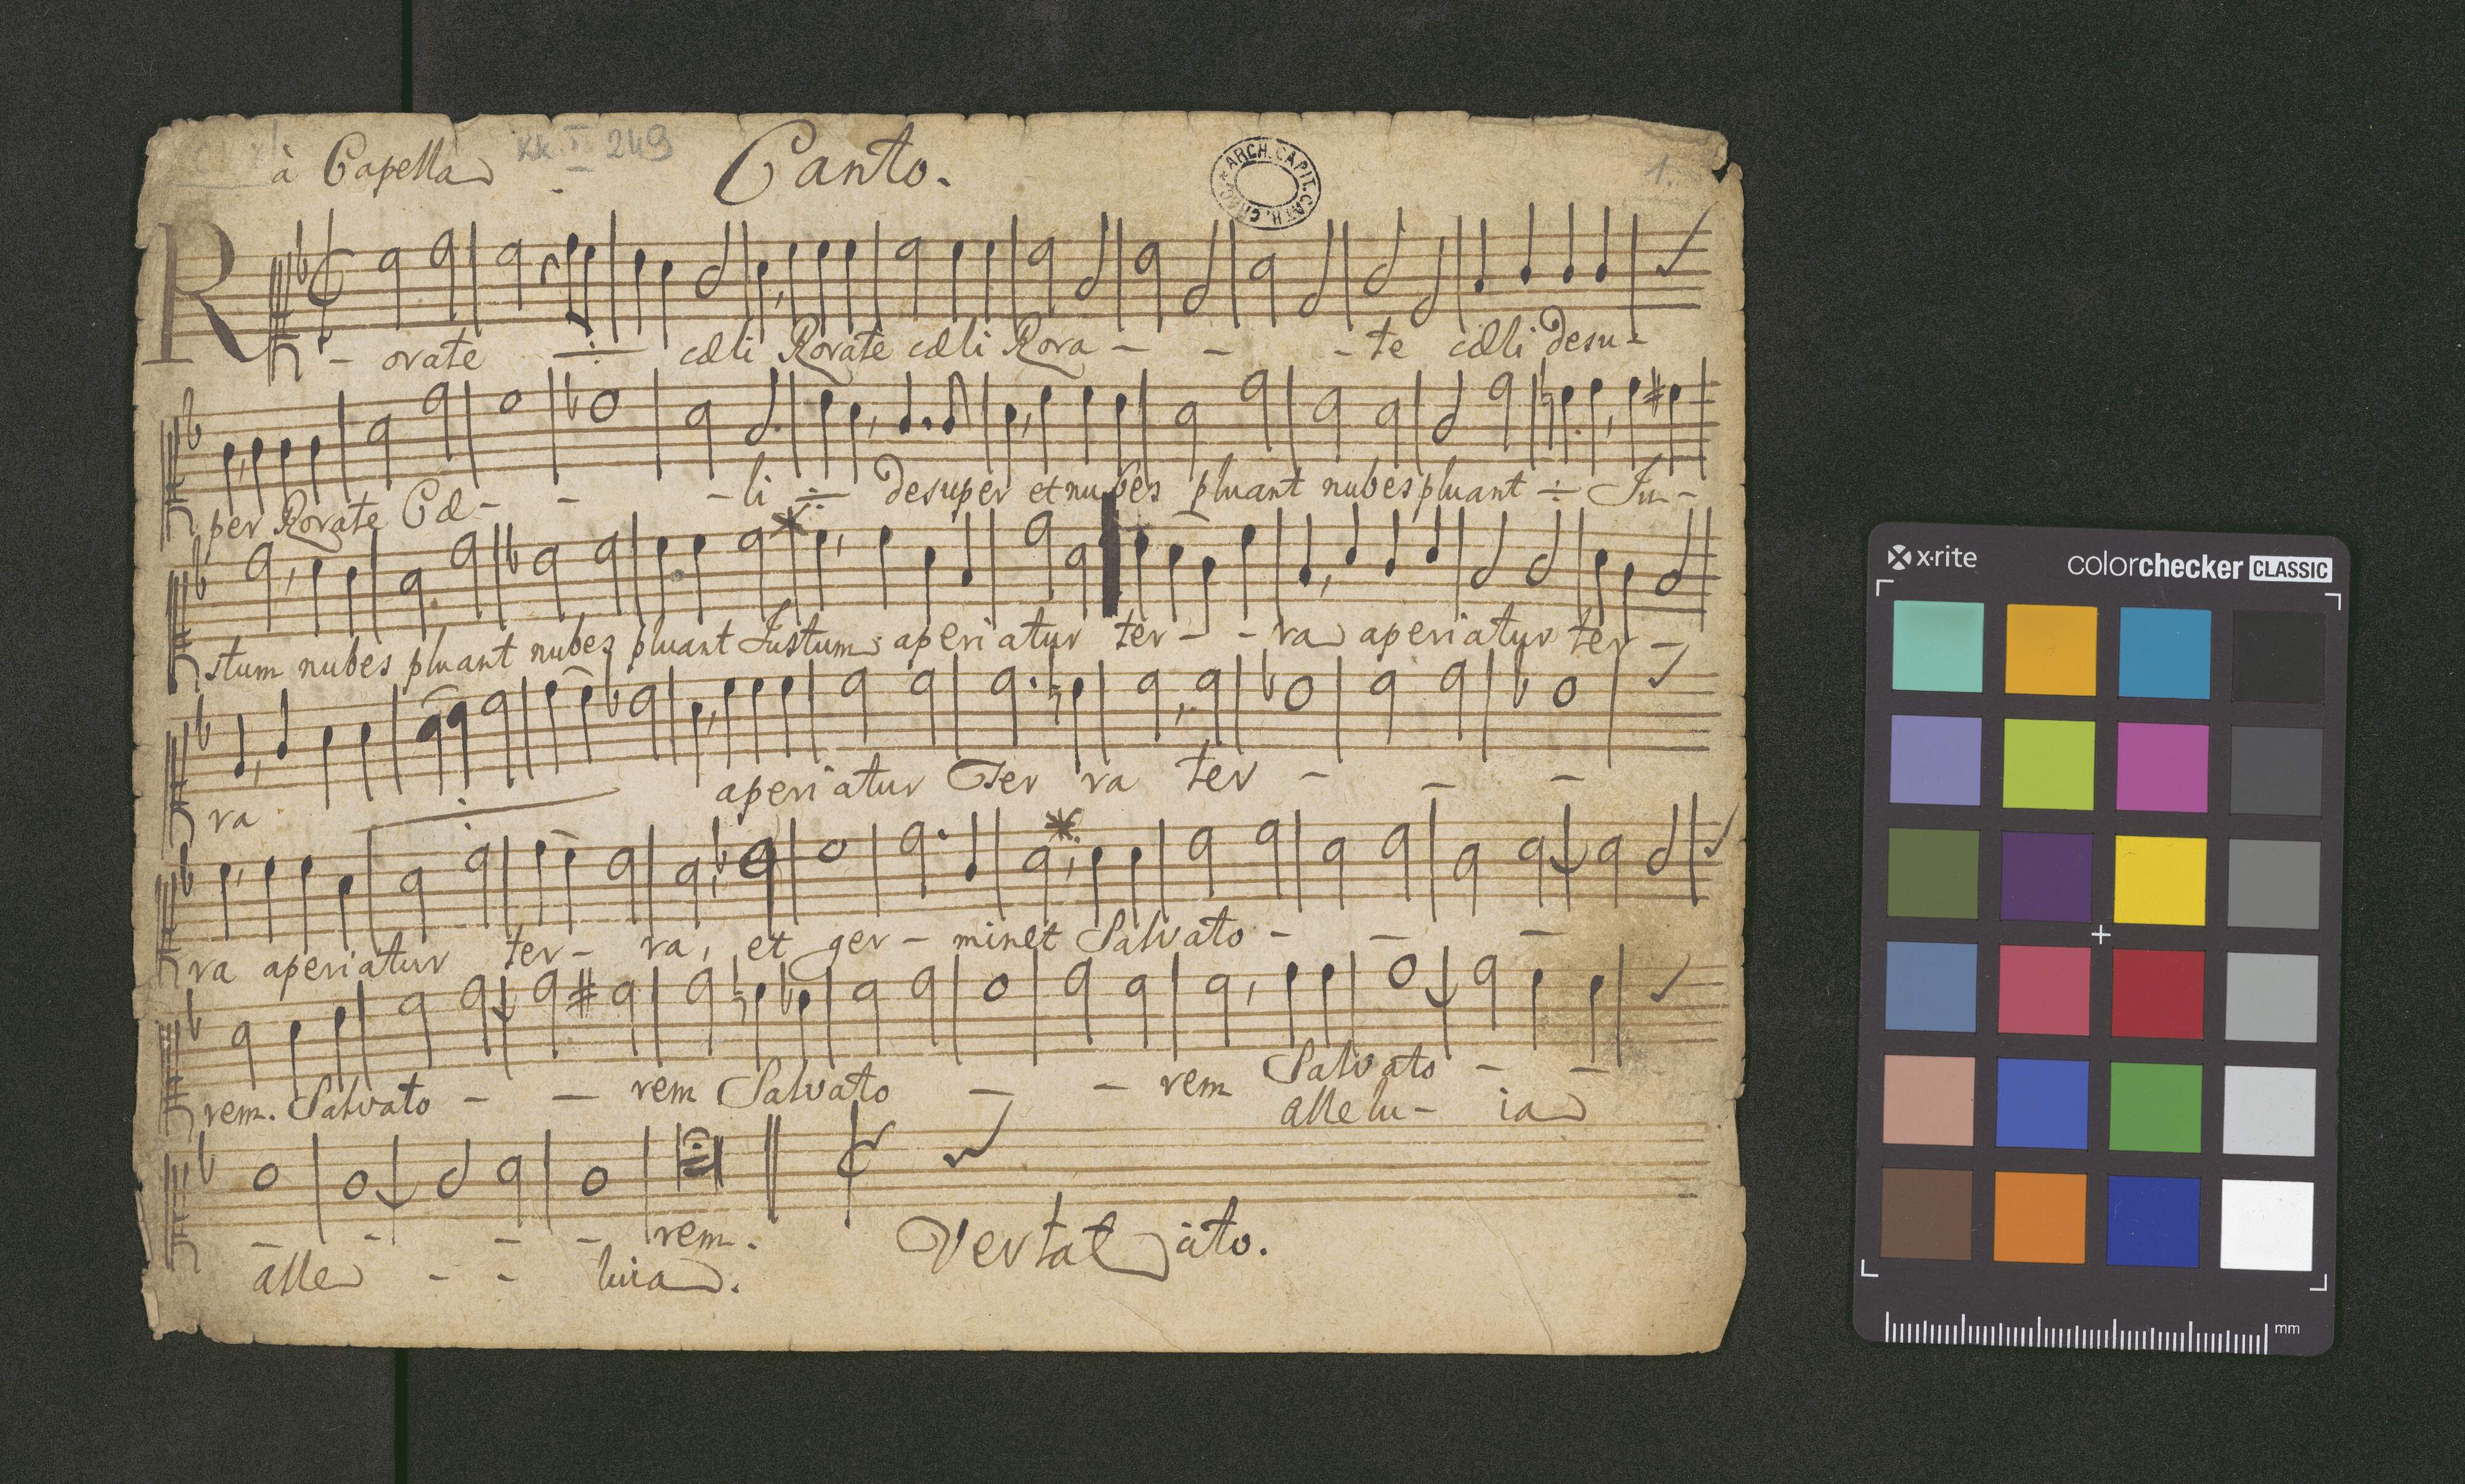 à Capella
Kk. I 249
Canto.
ARCH. CAPIT. CATH. CRAC.
1.
R - orate ÷ cæli Rorate cæli Rora - - - te cæli desu-
per Rorate Cæ - - - li ÷ desuper et nubes pluant nubes pluant ÷ Ju-
stum nubes pluant nubes pluant Justum aperiatur ter - - ra aperiatur ter -
ra ÷ aperiatur Ter ra ter - - -
ra aperiatur ter - ra, et ger - minet Salvato - - -
rem. Salvato - - rem Salvato - - rem Salvato - -
allelu - ia
- - - - rem.
alle - - luia.
Vertat cito.
x·rite
colorchecker CLASSIC
mm